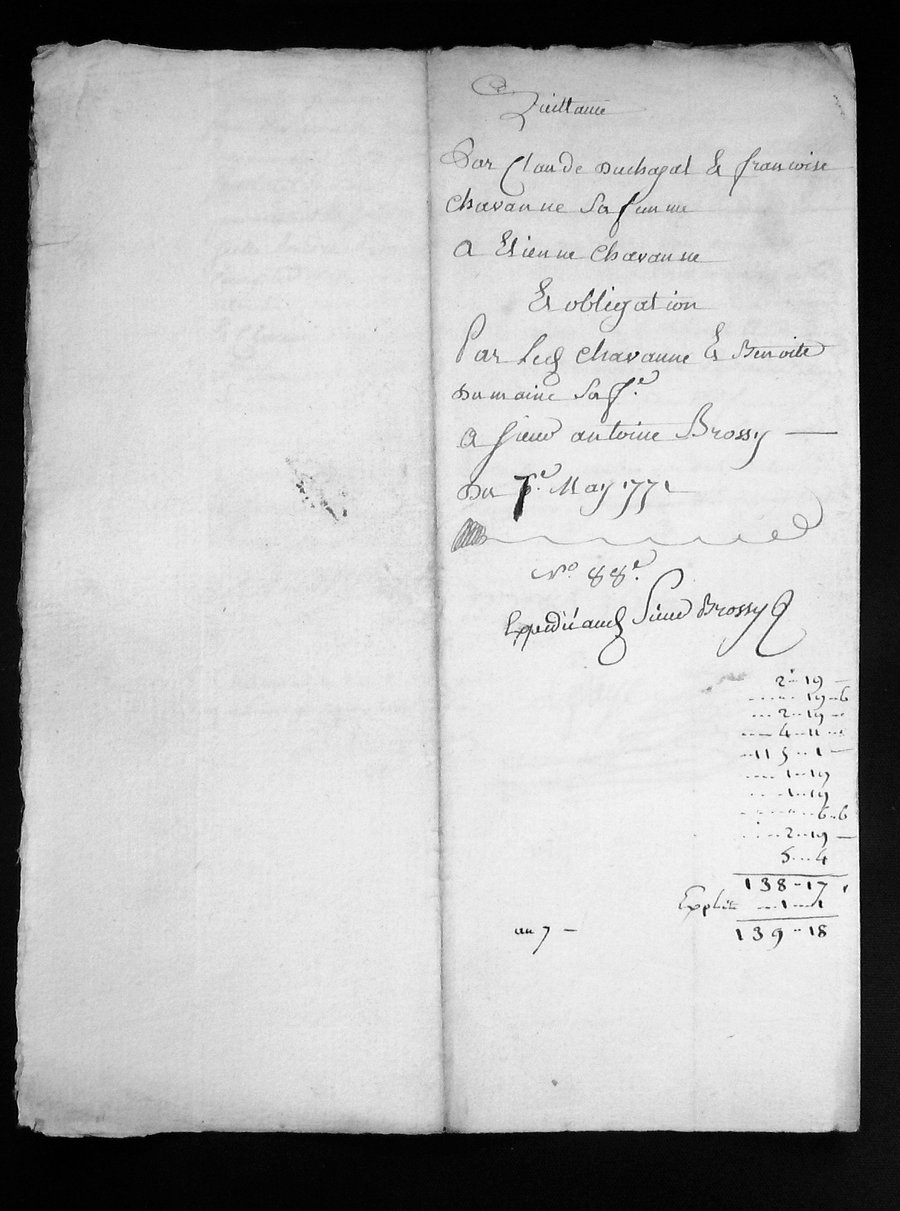 Quittance
Par Claude Duchapt & francoise
Chavanne Sa femme
a Etienne Chavanne
Et obligation
Par Led Chavanne & Benoite
Dumaine Sa fe.
a Sieur antoine Brossy —
Du 7e. May 1771
No. 88e.
Expedié aud Sieur Brossy
2 - 19 —
19 - 6
2 - 19 -
4 - 11 -
115 - 1 —
1 - 19
1 - 19
6 - 6
2 - 19 —
5 - 4
138 - 17
1 - 1
an 7 — 139 - 18